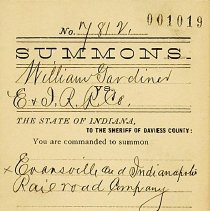 001019
No. 7812.
SUMMONS.
William Gardiner
vs.
E & I. R. R. Co.
THE STATE OF INDIANA,
TO THE SHERIFF OF DAVIESS COUNTY:
You are commanded to summon
x Evansville and Indianapolis
Railroad Company